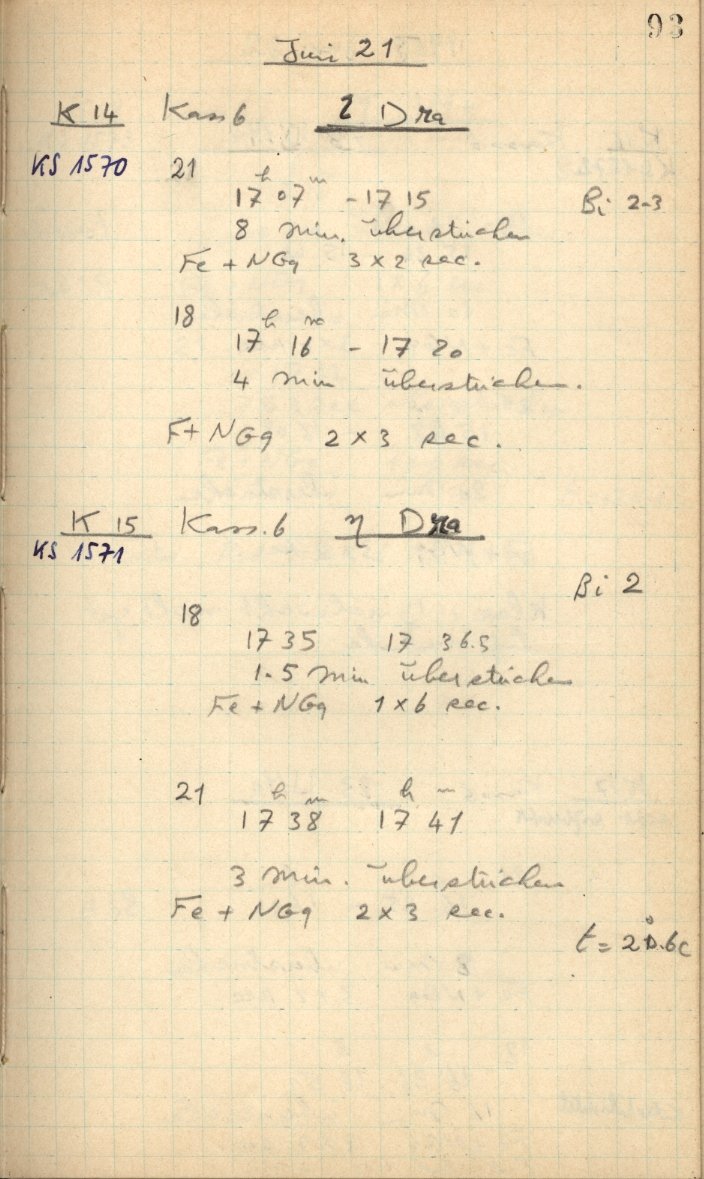 93
Juni 21
K 14 Kass 6 ζ Dra
KS 1570 21
17ʰ 07ᵐ - 17 15 Bi 2-3
8 min. überstrichen
Fe + NGq 3 x 2 sec.
18
17ʰ 16ᵐ - 17 20
4 min überstrichen.
F + NGq 2 x 3 sec.
K 15 Kass. 6 η Dra
KS 1571
Bi 2
18
17 35 17 36.5
1.5 min überstrichen
Fe + NGq 1 x 6 sec.
21
17ʰ 38ᵐ 17ʰ 41ᵐ
3 min. überstrichen
Fe + NGq 2 x 3 sec.